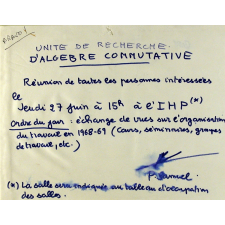 UNITE DE RECHERCHE
D'ALGEBRE COMMUTATIVE
Réunion de toutes les personnes intéressées
le
Jeudi 27 juin à 15h à l'IHP(*)
ordre du jour : échange de vues sur l'organisation
du travail en 1968-69 (Cours, séminaires, groupes
de travail, etc.)
P. Samuel
(*) La salle sera indiquée au tableau d'occupation
des salles.